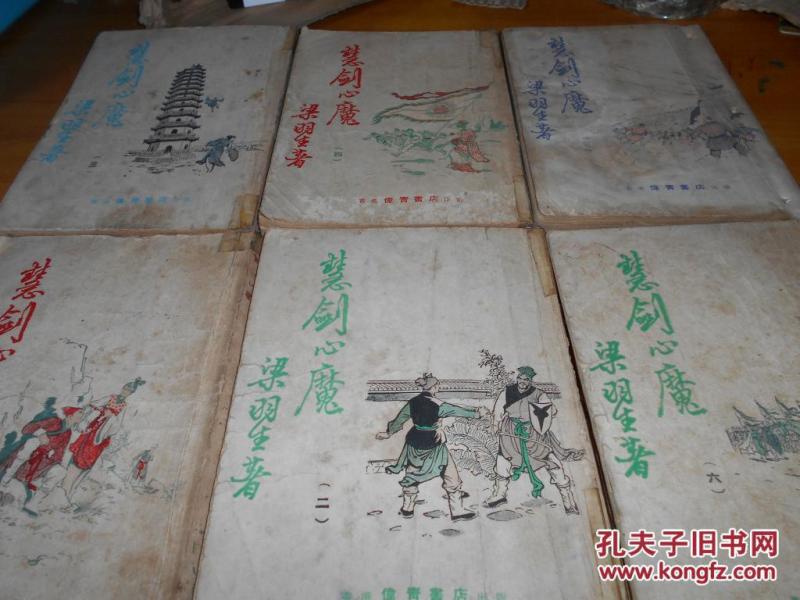 慧劍心魔
梁羽生著
(三)
偉青書店
慧劍心魔
梁羽生著
(四)
香港偉青書店印行
慧劍心魔
梁羽生著
偉青書店
慧劍心
慧劍心魔
梁羽生著
(二)
香港偉青書店出版
慧劍心魔
梁羽生著
(六)
孔夫子旧书网
www.kongfz.com